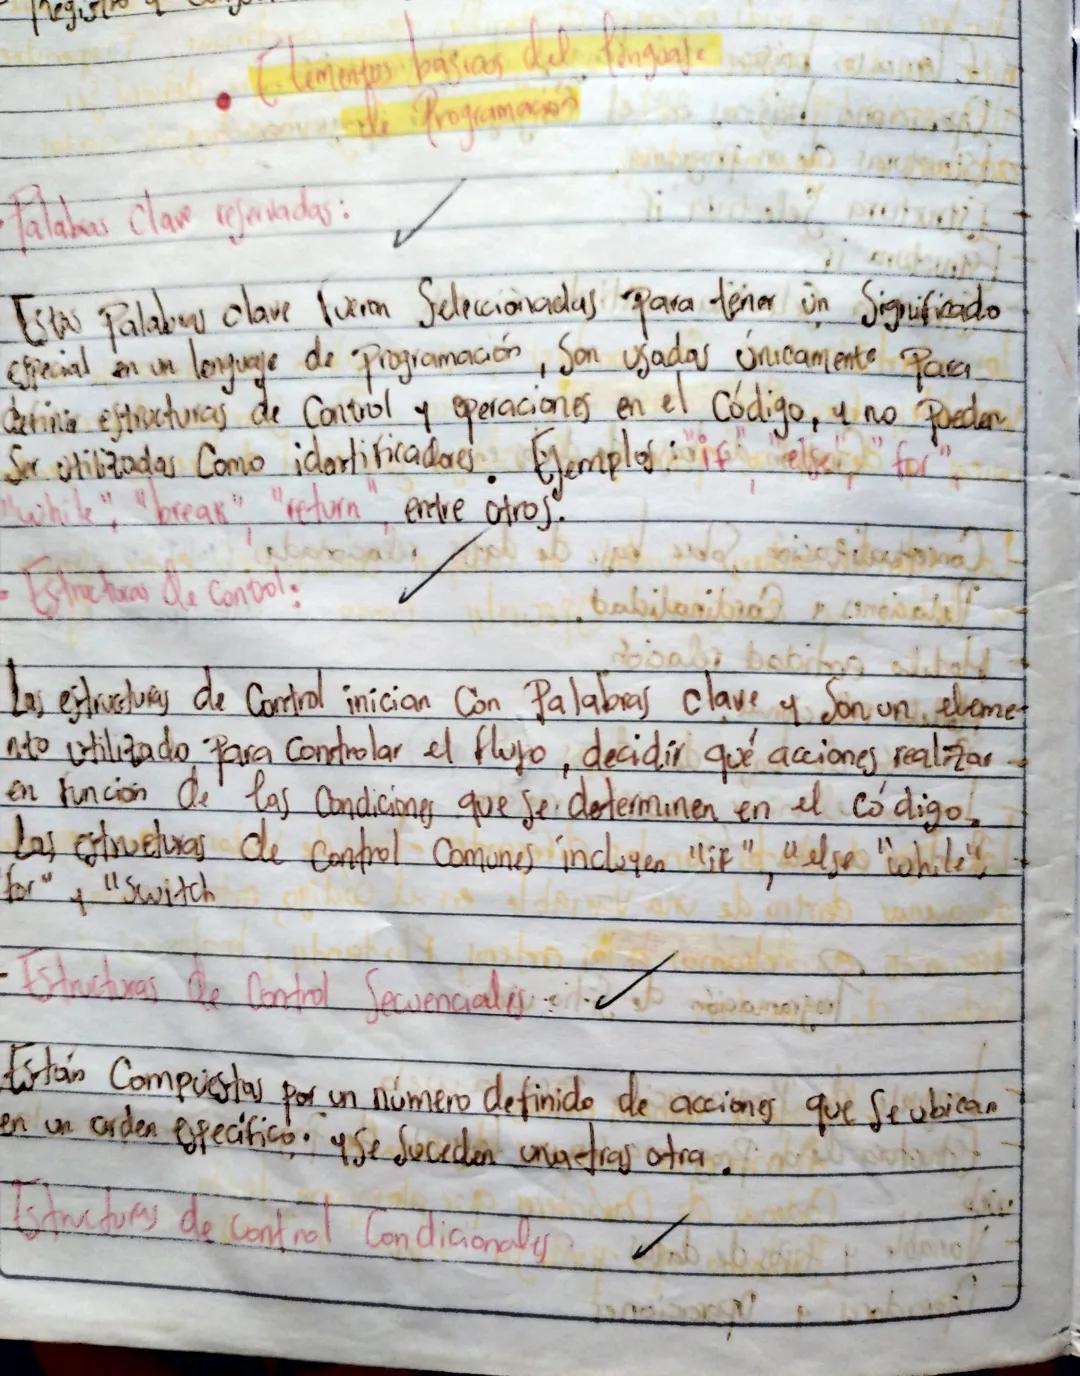 Registro y
• Elementos básicos del linguaje
de Programación
- Palabras clave reservadas:
Estas Palabras clave fueron Seleccionadas Para tener ún Significado
especial en un lenguaje de Programación, Son usadas únicamente Para
definir estructuras de Control y operaciones en el Código, y no Pueden
Ser utilizadas Como identificadores. Ejemplos: "if", "else", "for",
"while", "break", "return", entre otros.
- Estructuras de control:
Las estructuras de Control inician Con Palabras clave y Son un eleme-
nto utilizado Para Controlar el flujo, decidir qué acciones realizar
en función de las Condiciones que se determinen en el código.
Las estructuras de Control Comunes incluyen "if", "else "while",
for" y "Switch
- Estructuras de Control Secuenciales:
Están Compuestas por un número definido de acciones que Se ubican
en un orden específico. y Se Suceden una tras otra.
Estructuras de control Condicionales